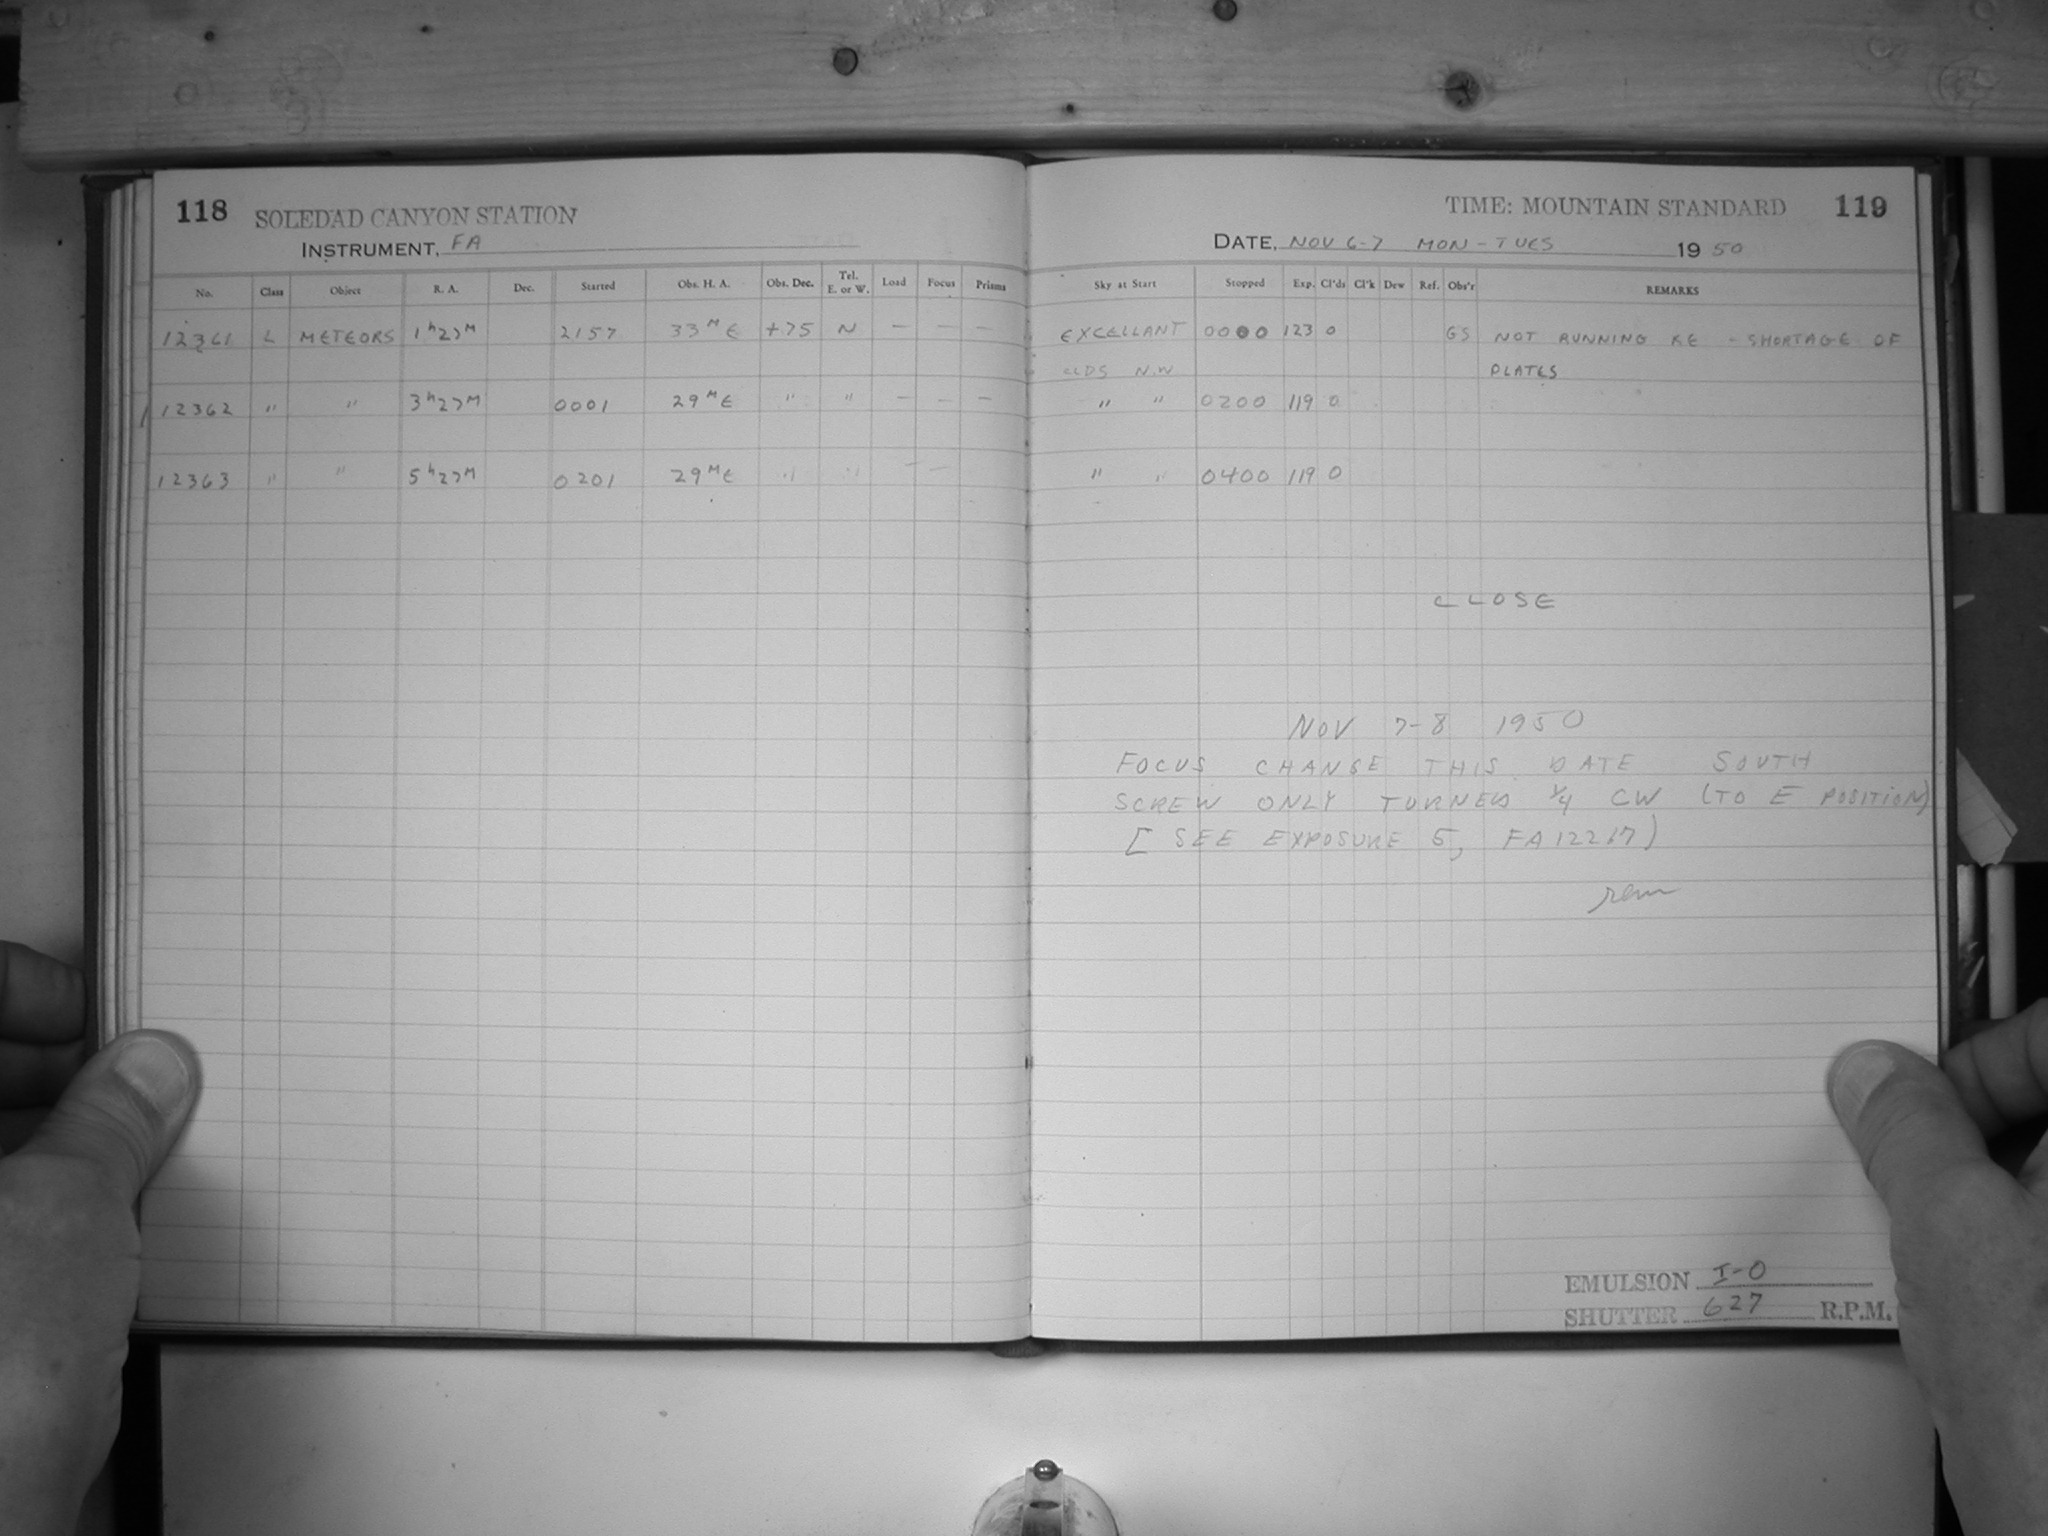 118 SOLEDAD CANYON STATION
INSTRUMENT, FA
No. Class Object R. A. Dec. Started Obs. H. A. Obs. Dec. Tel. E. or W. Load Focus Prisms
12361 L METEORS 1ʰ27ᴹ 2157 33ᴹE +75 N — — —
12362 " " 3ʰ27ᴹ 0001 29ᴹE " " — — —
12363 " " 5ʰ27ᴹ 0201 29ᴹE " " — —
TIME: MOUNTAIN STANDARD 119
DATE, NOV 6-7 MON-TUES 1950
Sky at Start Stopped Exp. Cl'ds Cl'k Dew Ref. Obs'r REMARKS
EXCELLANT 0000 123 0 GS NOT RUNNING KE - SHORTAGE OF
CLDS N.W PLATES
" " 0200 119 0
" " 0400 119 0
CLOSE
NOV 7-8 1950
FOCUS CHANGE THIS DATE SOUTH
SCREW ONLY TURNED 1/4 CW (TO E POSITION)
[SEE EXPOSURE 5, FA12267)
rem
EMULSION I-O
SHUTTER 627 R.P.M.